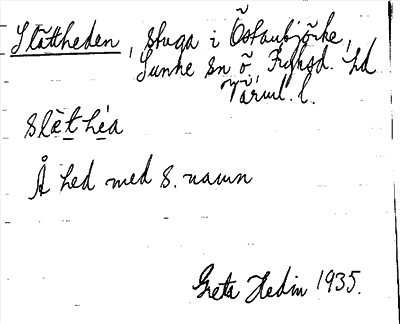 Slättheden, stuga i Östanbjörke,
Sunne sn ö. Fryksd. hd
Värml. l.
slèt héa
Å hed med s. namn
Greta Hedin 1935.